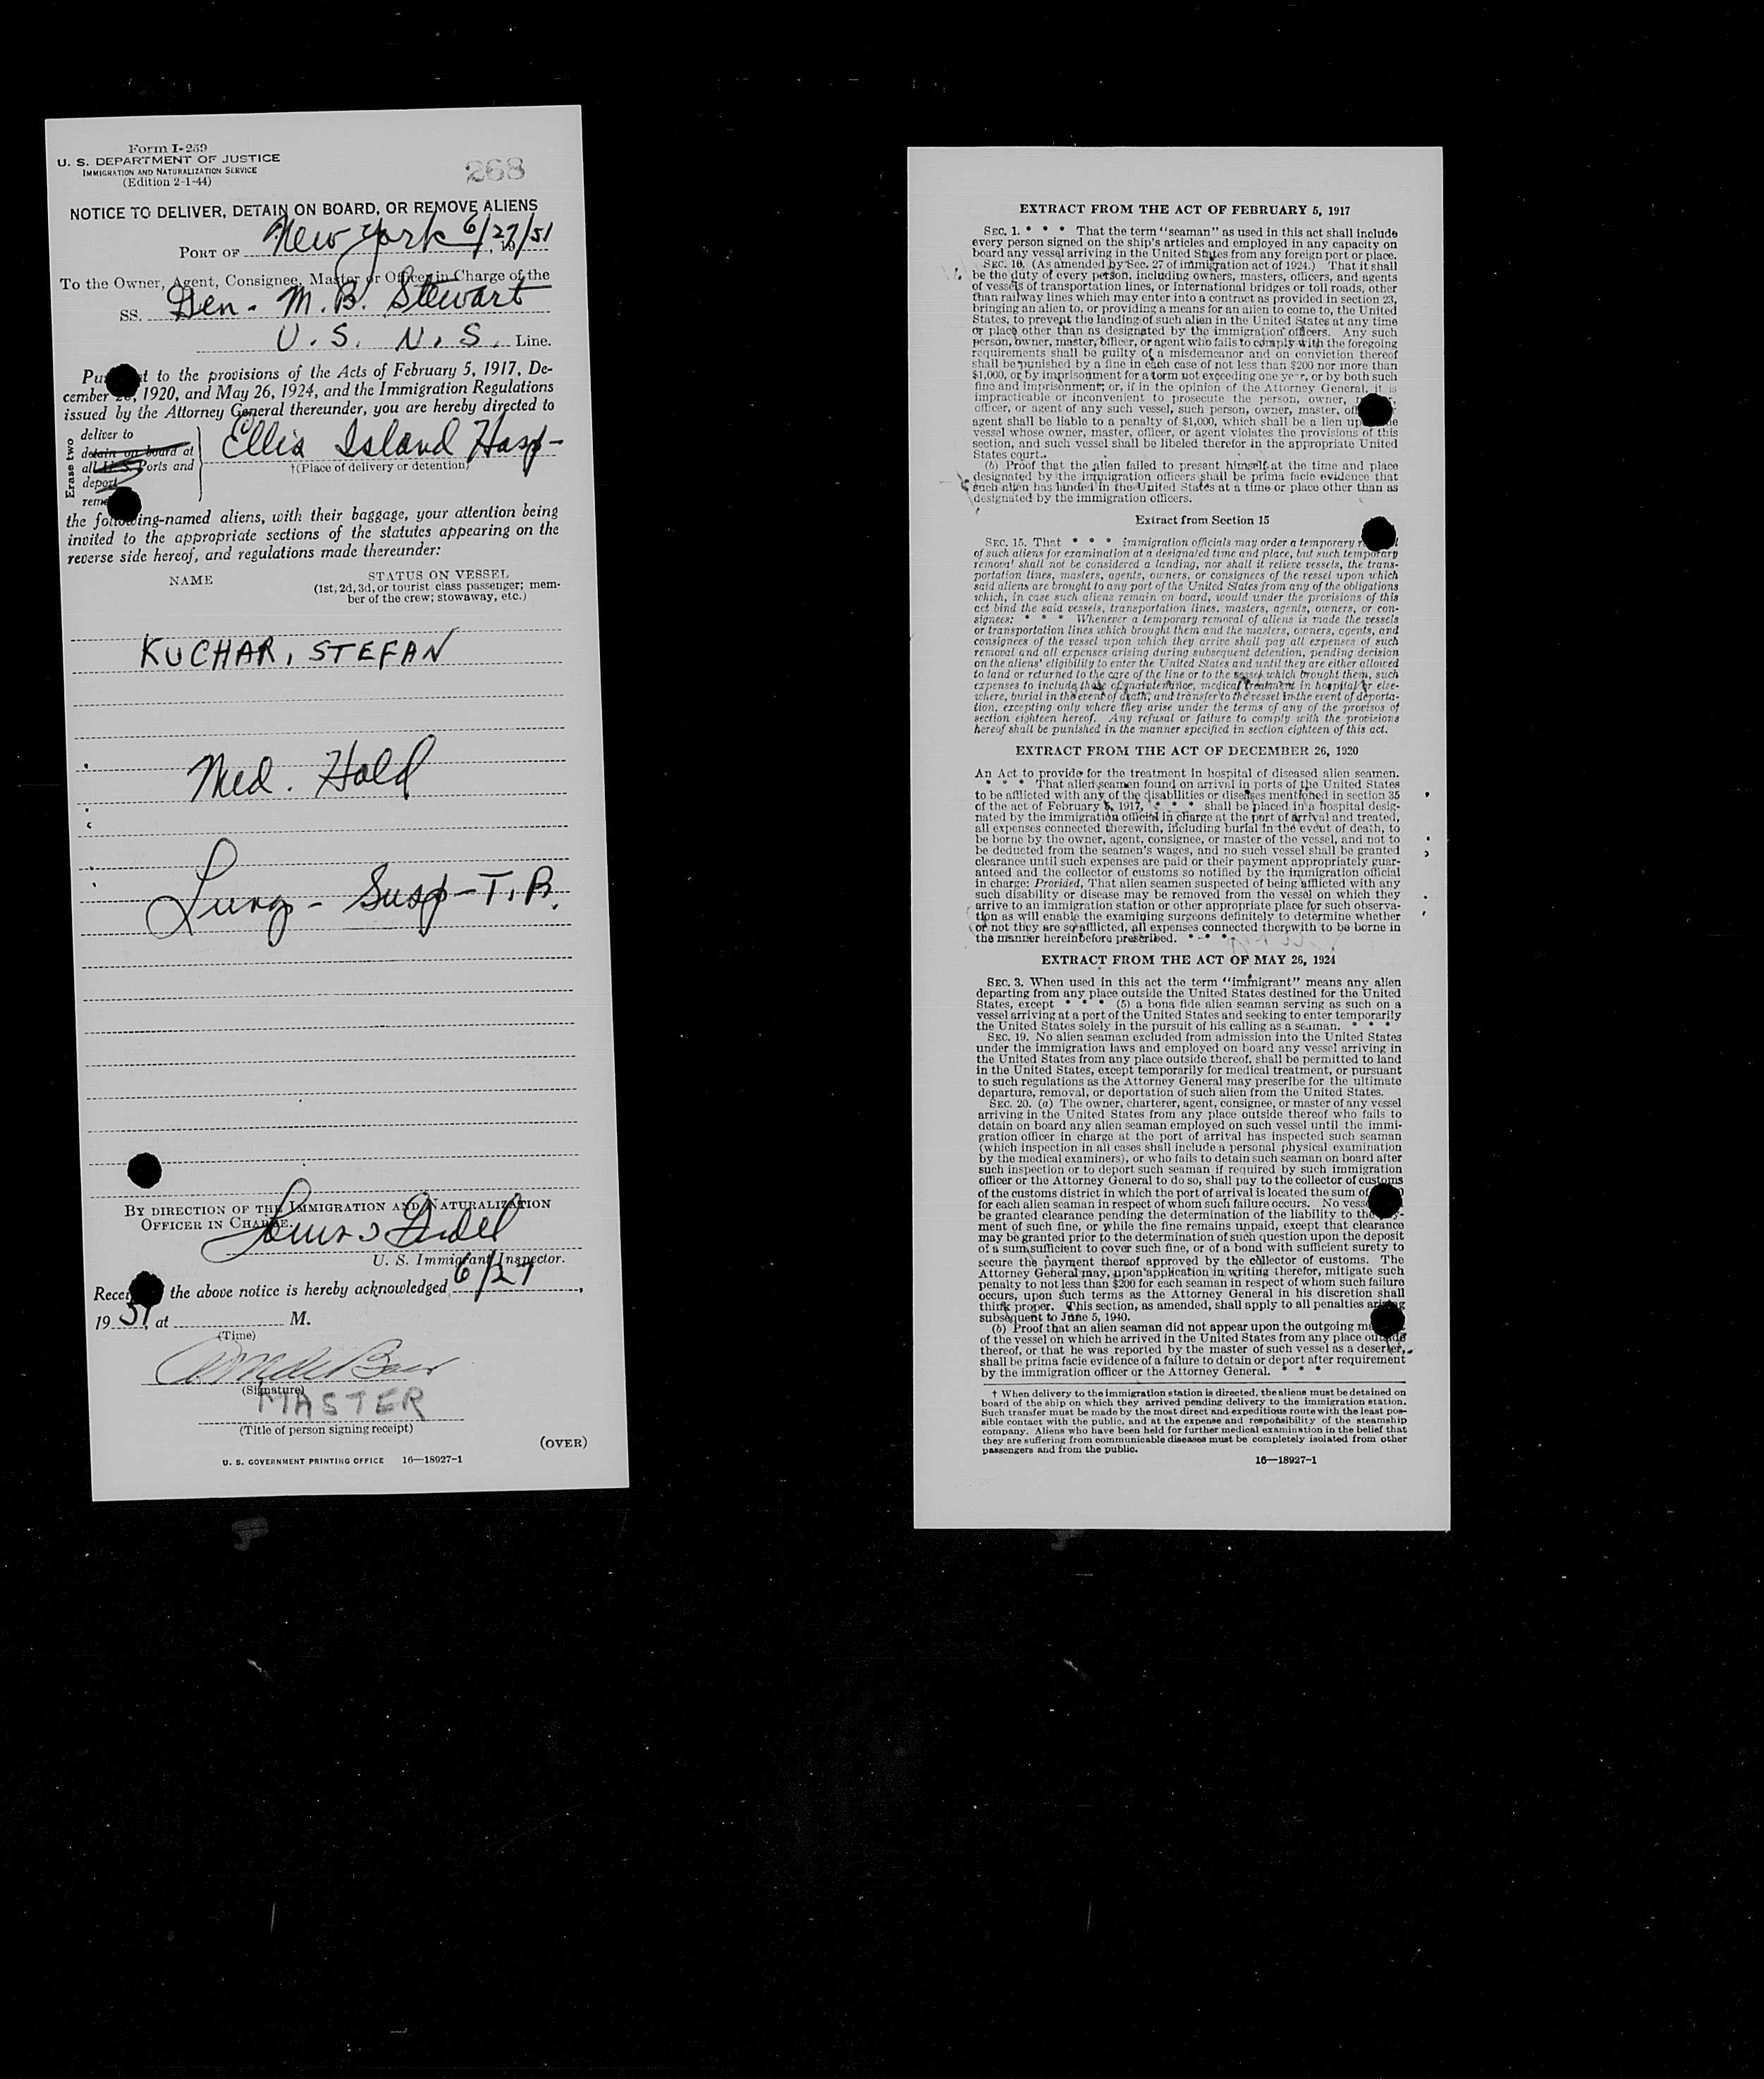 Form I-259
U. S. DEPARTMENT OF JUSTICE
IMMIGRATION AND NATURALIZATION SERVICE
(Edition 2-1-44)
268
NOTICE TO DELIVER, DETAIN ON BOARD, OR REMOVE ALIENS
PORT OF New York 6/27/51, 19
To the Owner, Agent, Consignee, Master or Officer in Charge of the
SS. Gen. M. B. Stewart
U. S. N. S. Line.
Pu t to the provisions of the Acts of February 5, 1917, De-
cember , 1920, and May 26, 1924, and the Immigration Regulations
issued by the Attorney General thereunder, you are hereby directed to
Erase two
deliver to
detain on board at
all U. S. Ports and
deport
remo
Ellis Island Hosp-
†(Place of delivery or detention)
the following-named aliens, with their baggage, your attention being
invited to the appropriate sections of the statutes appearing on the
reverse side hereof, and regulations made thereunder:
NAME
STATUS ON VESSEL
(1st, 2d, 3d, or tourist class passenger; mem-
ber of the crew; stowaway, etc.)
KUCHAR, STEFAN
Med. Hold
Lung - Susp - T.B.
BY DIRECTION OF THE IMMIGRATION AND NATURALIZATION
OFFICER IN CHARGE.
U. S. Immigrant Inspector.
Recei the above notice is hereby acknowledged 6/27,
1951, at M.
(Time)
(Signature)
MASTER
(Title of person signing receipt)
(OVER)
U. S. GOVERNMENT PRINTING OFFICE 16—18927-1
EXTRACT FROM THE ACT OF FEBRUARY 5, 1917
SEC. 1. * * * That the term "seaman" as used in this act shall include
every person signed on the ship's articles and employed in any capacity on
board any vessel arriving in the United States from any foreign port or place.
SEC. 10. (As amended by Sec. 27 of immigration act of 1924.) That it shall
be the duty of every person, including owners, masters, officers, and agents
of vessels of transportation lines, or international bridges or toll roads, other
than railway lines which may enter into a contract as provided in section 23,
bringing an alien to, or providing a means for an alien to come to, the United
States, to prevent the landing of such alien in the United States at any time
or place other than as designated by the immigration officers. Any such
person, owner, master, officer, or agent who fails to comply with the foregoing
requirements shall be guilty of a misdemeanor and on conviction thereof
shall be punished by a fine in each case of not less than $200 nor more than
$1,000, or by imprisonment for a term not exceeding one year, or by both such
fine and imprisonment; or, if in the opinion of the Attorney General, it is
impracticable or inconvenient to prosecute the person, owner,
officer, or agent of any such vessel, such person, owner, master, of
agent shall be liable to a penalty of $1,000, which shall be a lien up e
vessel whose owner, master, officer, or agent violates the provisions of this
section, and such vessel shall be libeled therefor in the appropriate United
States court.
(b) Proof that the alien failed to present himself at the time and place
designated by the immigration officers shall be prima facie evidence that
such alien has landed in the United States at a time or place other than as
designated by the immigration officers.
Extract from Section 15
SEC. 15. That * * * immigration officials may order a temporary r l
of such aliens for examination at a designated time and place, but such temporary
removal shall not be considered a landing, nor shall it relieve vessels, the trans-
portation lines, masters, agents, owners, or consignees of the vessel upon which
said aliens are brought to any port of the United States from any of the obligations
which, in case such aliens remain on board, would under the provisions of this
act bind the said vessels, transportation lines, masters, agents, owners, or con-
signees: * * * Whenever a temporary removal of aliens is made the vessels
or transportation lines which brought them and the masters, owners, agents, and
consignees of the vessel upon which they arrive shall pay all expenses of such
removal and all expenses arising during subsequent detention, pending decision
on the aliens' eligibility to enter the United States and until they are either allowed
to land or returned to the care of the line or to the vessel which brought them, such
expenses to include those of maintenance, medical treatment in hospital or else-
where, burial in the event of death, and transfer to the vessel in the event of deporta-
tion, excepting only where they arise under the terms of any of the provisos of
section eighteen hereof. Any refusal or failure to comply with the provisions
hereof shall be punished in the manner specified in section eighteen of this act.
EXTRACT FROM THE ACT OF DECEMBER 26, 1920
An Act to provide for the treatment in hospital of diseased alien seamen.
* * * That alien seamen found on arrival in ports of the United States
to be afflicted with any of the disabilities or diseases mentioned in section 35
of the act of February 5, 1917, * * * shall be placed in a hospital desig-
nated by the immigration official in charge at the port of arrival and treated,
all expenses connected therewith, including burial in the event of death, to
be borne by the owner, agent, consignee, or master of the vessel, and not to
be deducted from the seamen's wages, and no such vessel shall be granted
clearance until such expenses are paid or their payment appropriately guar-
anteed and the collector of customs so notified by the immigration official
in charge: Provided, That alien seamen suspected of being afflicted with any
such disability or disease may be removed from the vessel on which they
arrive to an immigration station or other appropriate place for such observa-
tion as will enable the examining surgeons definitely to determine whether
or not they are so afflicted, all expenses connected therewith to be borne in
the manner hereinbefore prescribed. * * *
EXTRACT FROM THE ACT OF MAY 26, 1924
SEC. 3. When used in this act the term "immigrant" means any alien
departing from any place outside the United States destined for the United
States, except * * * (5) a bona fide alien seaman serving as such on a
vessel arriving at a port of the United States and seeking to enter temporarily
the United States solely in the pursuit of his calling as a seaman. * * *
SEC. 19. No alien seaman excluded from admission into the United States
under the immigration laws and employed on board any vessel arriving in
the United States from any place outside thereof, shall be permitted to land
in the United States, except temporarily for medical treatment, or pursuant
to such regulations as the Attorney General may prescribe for the ultimate
departure, removal, or deportation of such alien from the United States.
SEC. 20. (a) The owner, charterer, agent, consignee, or master of any vessel
arriving in the United States from any place outside thereof who fails to
detain on board any alien seaman employed on such vessel until the immi-
gration officer in charge at the port of arrival has inspected such seaman
(which inspection in all cases shall include a personal physical examination
by the medical examiners), or who fails to detain such seaman on board after
such inspection or to deport such seaman if required by such immigration
officer or the Attorney General to do so, shall pay to the collector of customs
of the customs district in which the port of arrival is located the sum of
for each alien seaman in respect of whom such failure occurs. No vess
be granted clearance pending the determination of the liability to the
ment of such fine, or while the fine remains unpaid, except that clearance
may be granted prior to the determination of such question upon the deposit
of a sum sufficient to cover such fine, or of a bond with sufficient surety to
secure the payment thereof approved by the collector of customs. The
Attorney General may, upon application in writing therefor, mitigate such
penalty to not less than $200 for each seaman in respect of whom such failure
occurs, upon such terms as the Attorney General in his discretion shall
think proper. This section, as amended, shall apply to all penalties arising
subsequent to June 5, 1940.
(b) Proof that an alien seaman did not appear upon the outgoing m
of the vessel on which he arrived in the United States from any place outside
thereof, or that he was reported by the master of such vessel as a deserter,
shall be prima facie evidence of a failure to detain or deport after requirement
by the immigration officer or the Attorney General. * * *
† When delivery to the immigration station is directed, the aliens must be detained on
board of the ship on which they arrived pending delivery to the immigration station.
Such transfer must be made by the most direct and expeditious route with the least pos-
sible contact with the public, and at the expense and responsibility of the steamship
company. Aliens who have been held for further medical examination in the belief that
they are suffering from communicable diseases must be completely isolated from other
passengers and from the public.
16—18927-1